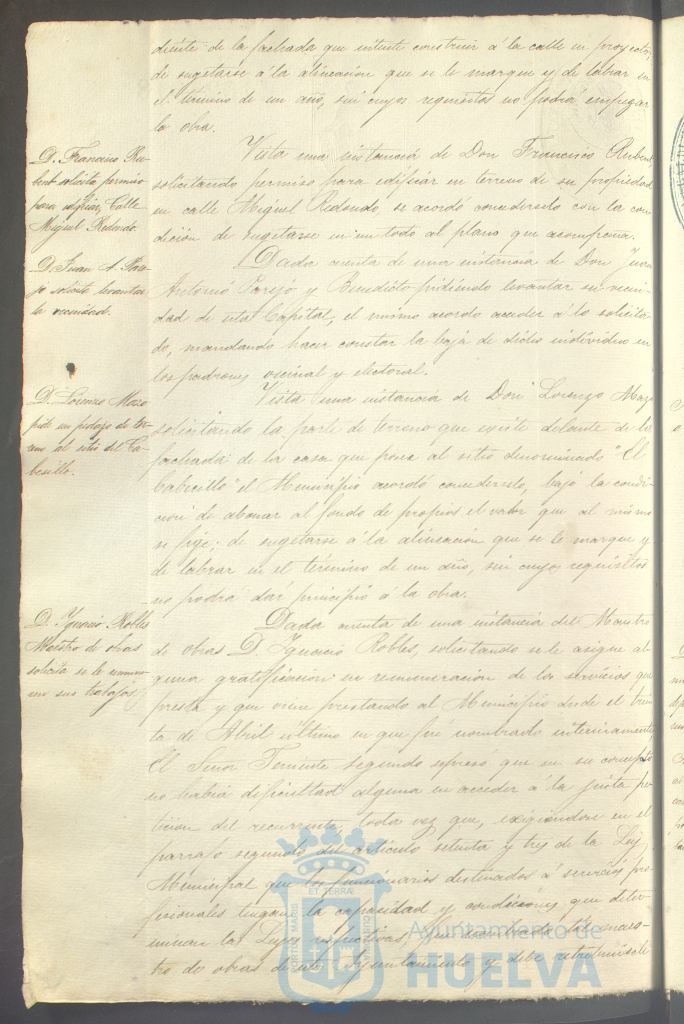 diente de la fachada que intente construir á la calle en proyecto,
de sugetarse á la alineacion que se le marque y de labrar en
el término de un año, sin cuyos requisitos no podrá empezar
la obra.
D. Francisco Ru-
bent solicita permiso
para edificar, Calle
Miguel Redondo.
Vista una instancia de Don Francisco Rubent
solicitando permiso para edificar en terreno de su propiedad
en calle Miguel Redondo se acordó concederselo con la con
dicion de sugetarse en un todo al plano que acompaña.
D. Juan A.
solicita levantar
la vecindad.
Dada cuenta de una instancia de Don Juan
Antonio Parejo y Benedicto pidiendo levantar su vecin-
dad de esta Capital, el mismo acordó acceder á lo solicita-
do, mandando hacer constar la baja de dicho individuo en
los padrones vecinal y electoral.
D. Lorenzo Mazo
pide un pedazo de ter-
reno al sitio del Ca-
besillo.
Vista una instancia de Don Lorenzo Mazo
solicitando la parte de terreno que existe delante de la
fachada de la casa que posee al sitio denominado "El
Cabecillo" el Municipio acordó concederselo, bajo la condi-
cion de abonar al fondo de propios el valor que al mismo
se fije; de sugetarse á la alineacion que se le marque y
de labrar en el término de un año, sin cuyos requisitos
no podrá dar principio á la obra.
D. Ygnacio Robles
Maestro de obras
solicita se le remune
ren sus trabajos
Dada cuenta de una instancia del Maestro
de obras D. Ygnacio Robles, solicitando se le asigne al-
guna gratificacion en remuneracion de los servicios que
presta y que viene prestando al Municipio desde el trein
ta de Abril último en que fué nombrado interinamente,
El Señor Teniente segundo espresó que en su concepto
no habia dificultad alguna en acceder á la justa pe-
ticion del recurrente, toda vez que, exigiendose en el
parrafo segundo del artículo setenta y tres de la Ley
Municipal que los funcionarios destinados á servicios pro-
fesionales tengan la capacidad y condiciones que deter-
minan las Leyes respectivas,
tro de obras de este Ayuntamiento y debe
ET TERRA
PORTUS MARIS
CUSTODIA
Ayuntamiento de
HUELVA